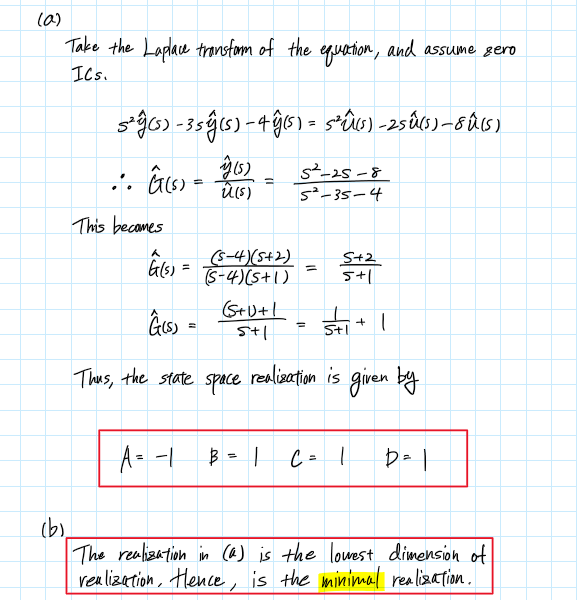 (a)
Take the Laplace transform of the equation, and assume zero
ICs.
s²ŷ(s) - 3sŷ(s) - 4ŷ(s) = s²û(s) - 2sû(s) - 8û(s)
∴ Ĝ(s) = ŷ(s)/û(s) = (s²-2s-8)/(s²-3s-4)
This becomes
Ĝ(s) = (s-4)(s+2)/(s-4)(s+1) = (s+2)/(s+1)
Ĝ(s) = ((s+1)+1)/(s+1) = 1/(s+1) + 1
Thus, the state space realization is given by
A = -1 B = 1 C = 1 D = 1
(b)
The realization in (a) is the lowest dimension of
realization. Hence, is the minimal realization.